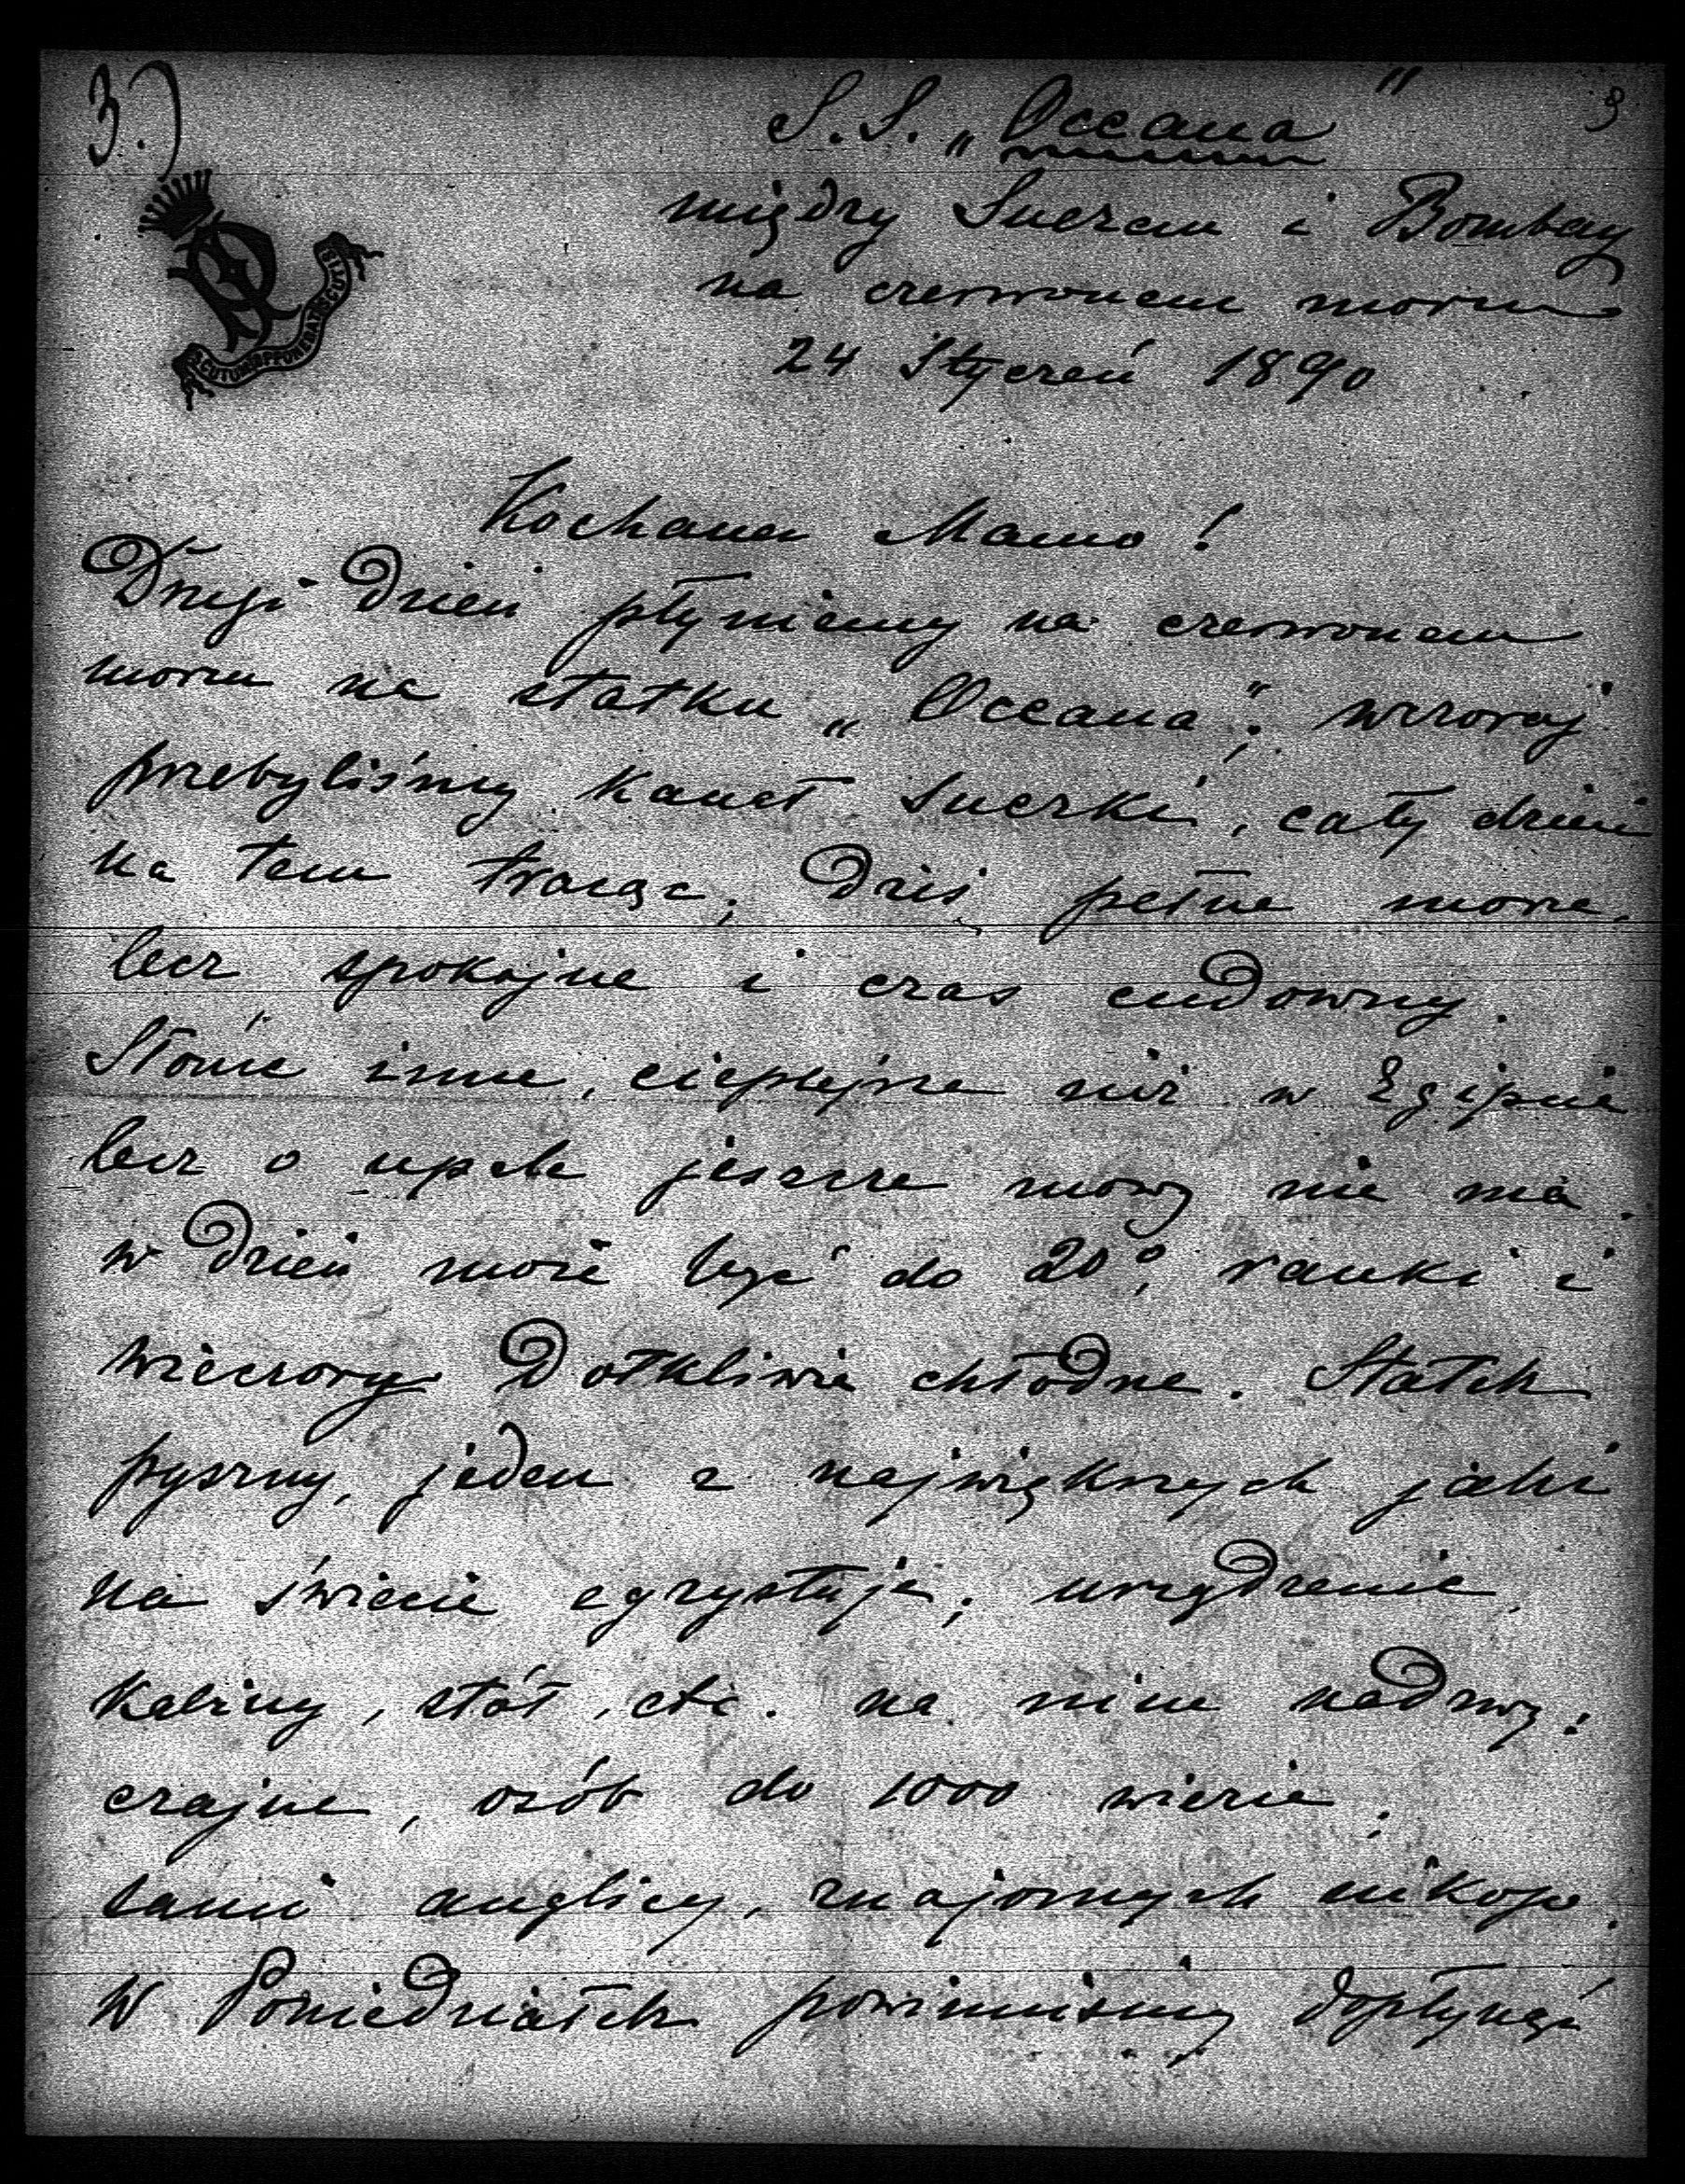 3.)
S. S. „Oceana"
3
między Suezem i Bombay
na czerwonem morzu
24 Styczeń 1890
SCUTUM OPPONEBAT SCUTIS
Kochana Mamo!
Drugi dzień płyniemy na czerwonem
morzu na statku „Oceana"; wczoraj
przebyliśmy kanał Suezki, cały dzień
na tem tracąc; Dziś pełne morze,
lecz spokojne i czas cudowny.
Słońce inne, cieplejsze niż w Egipcie
lecz o upale jeszcze mowy nie ma.
w dzień może być do 20°; ranki i
wieczory Dotkliwie chłodne. Statek
pyszny, jeden z największych jaki
na świecie egzystuje; urządzenie,
kabiny, stół, etc. na nim nadzwy:
czajne, osób do 1000 wiezie;
sami anglicy, znajomych nikogo.
W Poniedziałek powinniśmy dopłynąć